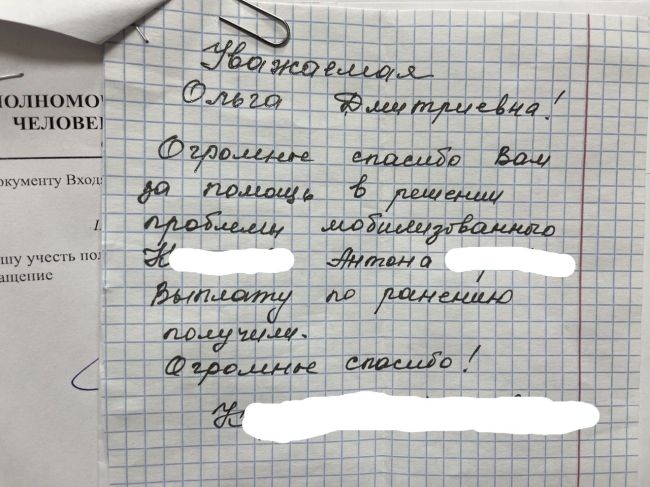 Уважаемая
Ольга Дмитриевна!
Огромное спасибо Вам
за помощь в решении
проблемы мобилизованного
К Антона
Выплату по ранению
получили.
Огромное спасибо!
К
ПОЛНОМО
ЧЕЛОВЕ
окументу Входя
шу учесть пол
ащение